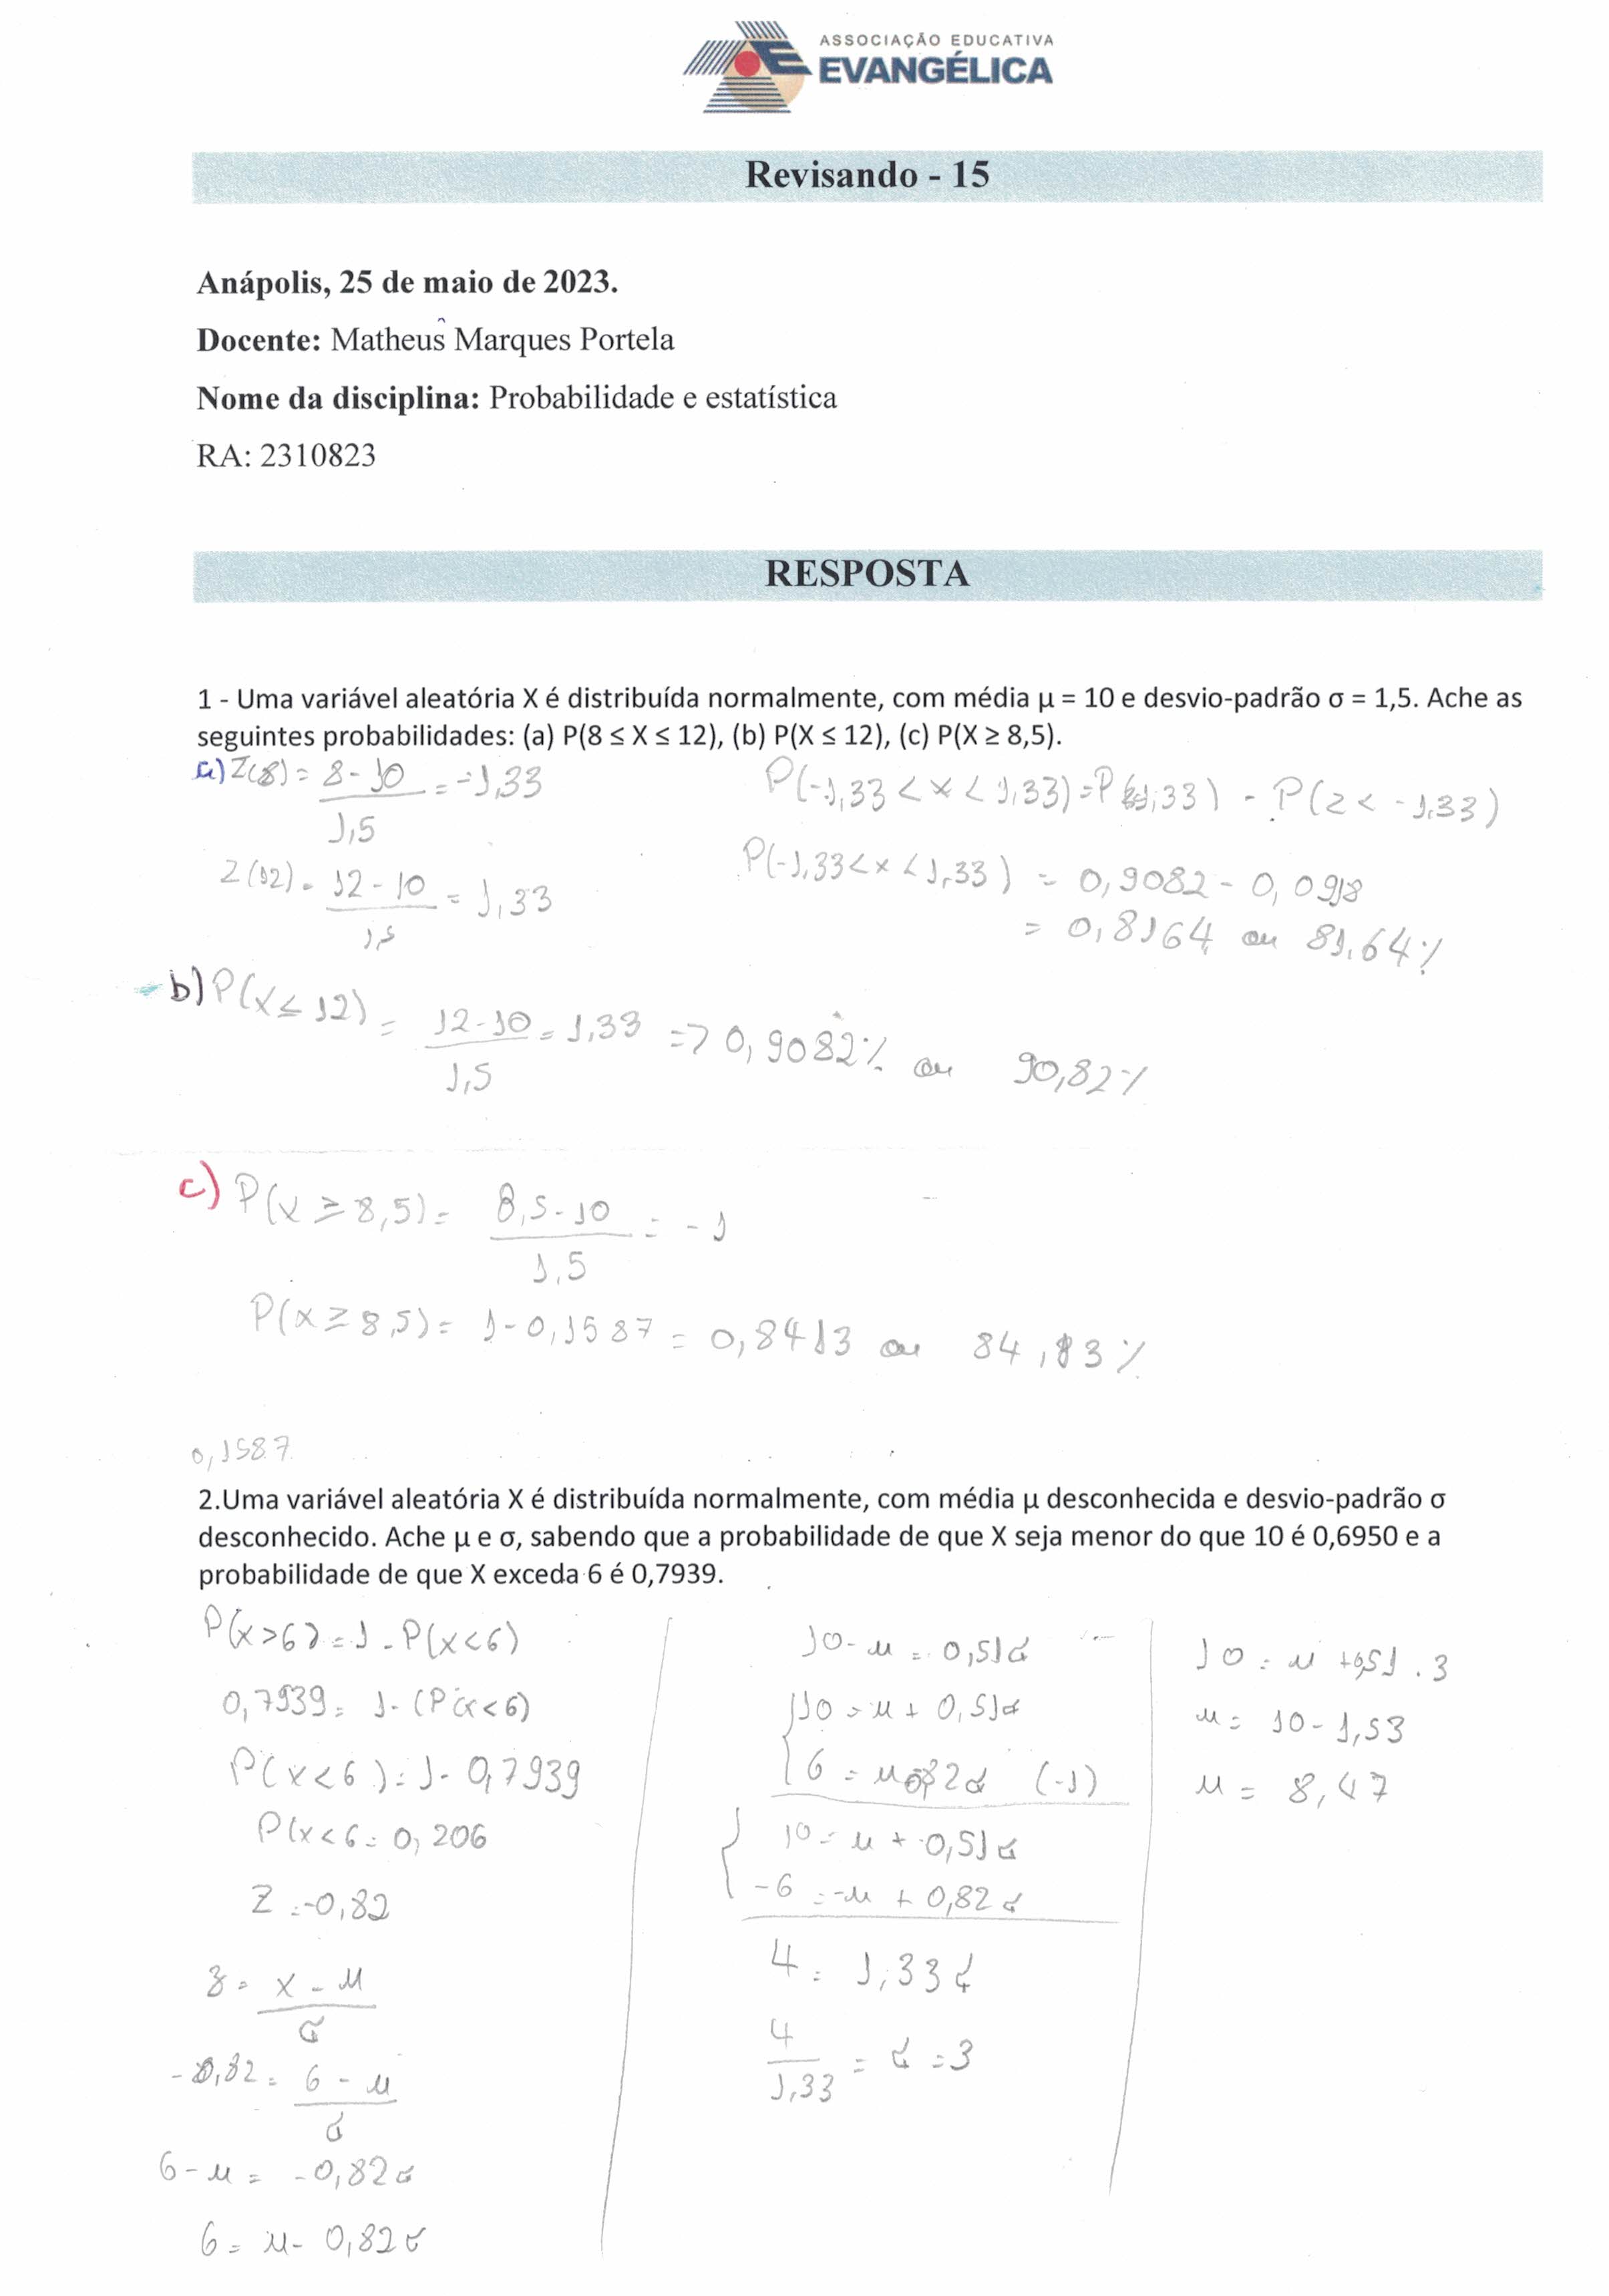 ASSOCIAÇÃO EDUCATIVA
EVANGÉLICA
Revisando - 15
Anápolis, 25 de maio de 2023.
Docente: Matheus Marques Portela
Nome da disciplina: Probabilidade e estatística
RA: 2310823
RESPOSTA
1 - Uma variável aleatória X é distribuída normalmente, com média μ = 10 e desvio-padrão σ = 1,5. Ache as
seguintes probabilidades: (a) P(8 ≤ X ≤ 12), (b) P(X ≤ 12), (c) P(X ≥ 8,5).
a) Z(8) = 8-10 / 1,5 = -1,33
Z(12) = 12-10 / 1,5 = 1,33
P(-1,33 < x < 1,33) = P( 1,33) - P(z < -1,33)
P(-1,33 < x < 1,33) = 0,9082 - 0,0918
= 0,8164 ou 81,64%
b) P(x ≤ 12) = 12-10 / 1,5 = 1,33 => 0,9082% ou 90,82%
c) P(x ≥ 8,5) = 8,5-10 / 1,5 = -1
P(x ≥ 8,5) = 1-0,1587 = 0,8413 ou 84,13%
0,1587
2.Uma variável aleatória X é distribuída normalmente, com média μ desconhecida e desvio-padrão σ
desconhecido. Ache μ e σ, sabendo que a probabilidade de que X seja menor do que 10 é 0,6950 e a
probabilidade de que X exceda 6 é 0,7939.
P(x>6) = 1 - P(x<6)
0,7939 = 1 - (P(x<6)
P(x<6) = 1 - 0,7939
P(x<6 = 0,206
Z = -0,82
z = x - μ / σ
-0,82 = 6 - μ / σ
6 - μ = -0,82σ
6 = μ - 0,82σ
10 - μ = 0,51σ
10 = μ + 0,51σ
6 = μ 0,82σ (-1)
10 = μ + 0,51σ
-6 = -μ + 0,82σ
4 = 1,33σ
4 / 1,33 = σ = 3
10 = μ + 0,51 . 3
μ = 10 - 1,53
μ = 8,47